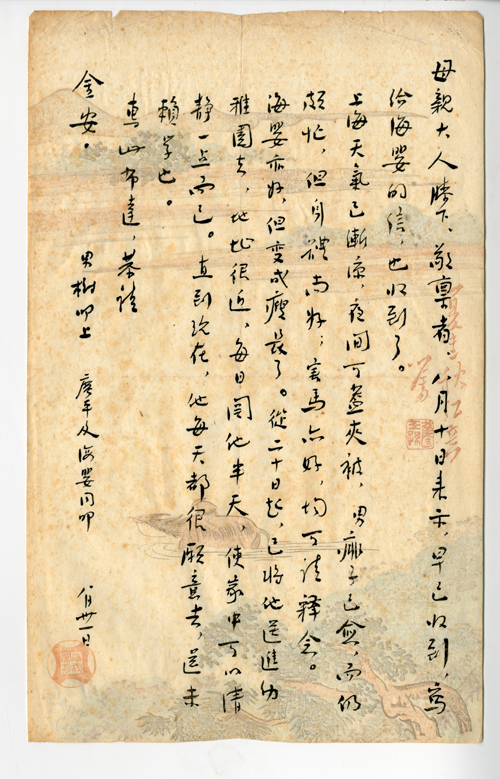 母親大人膝下、敬禀者、八月十日來示，早已收到，寫
給海嬰的信，也收到了。
上海天氣已漸凉，夜間可蓋夾被，男痱子已愈，而仍
頗忙，但身體尚好；害馬亦好，均可請釋念。
海嬰亦好，但變成瘦長了。從二十日起，已將他送進幼
稚園去，地址很近，每日関他半天，使家中可以清
静一点而已。直到現在，他每天都很願意去，還未
賴学也。
專此布達，恭請
金安。
男樹叩上　廣平及海嬰同叩　八月卅一日